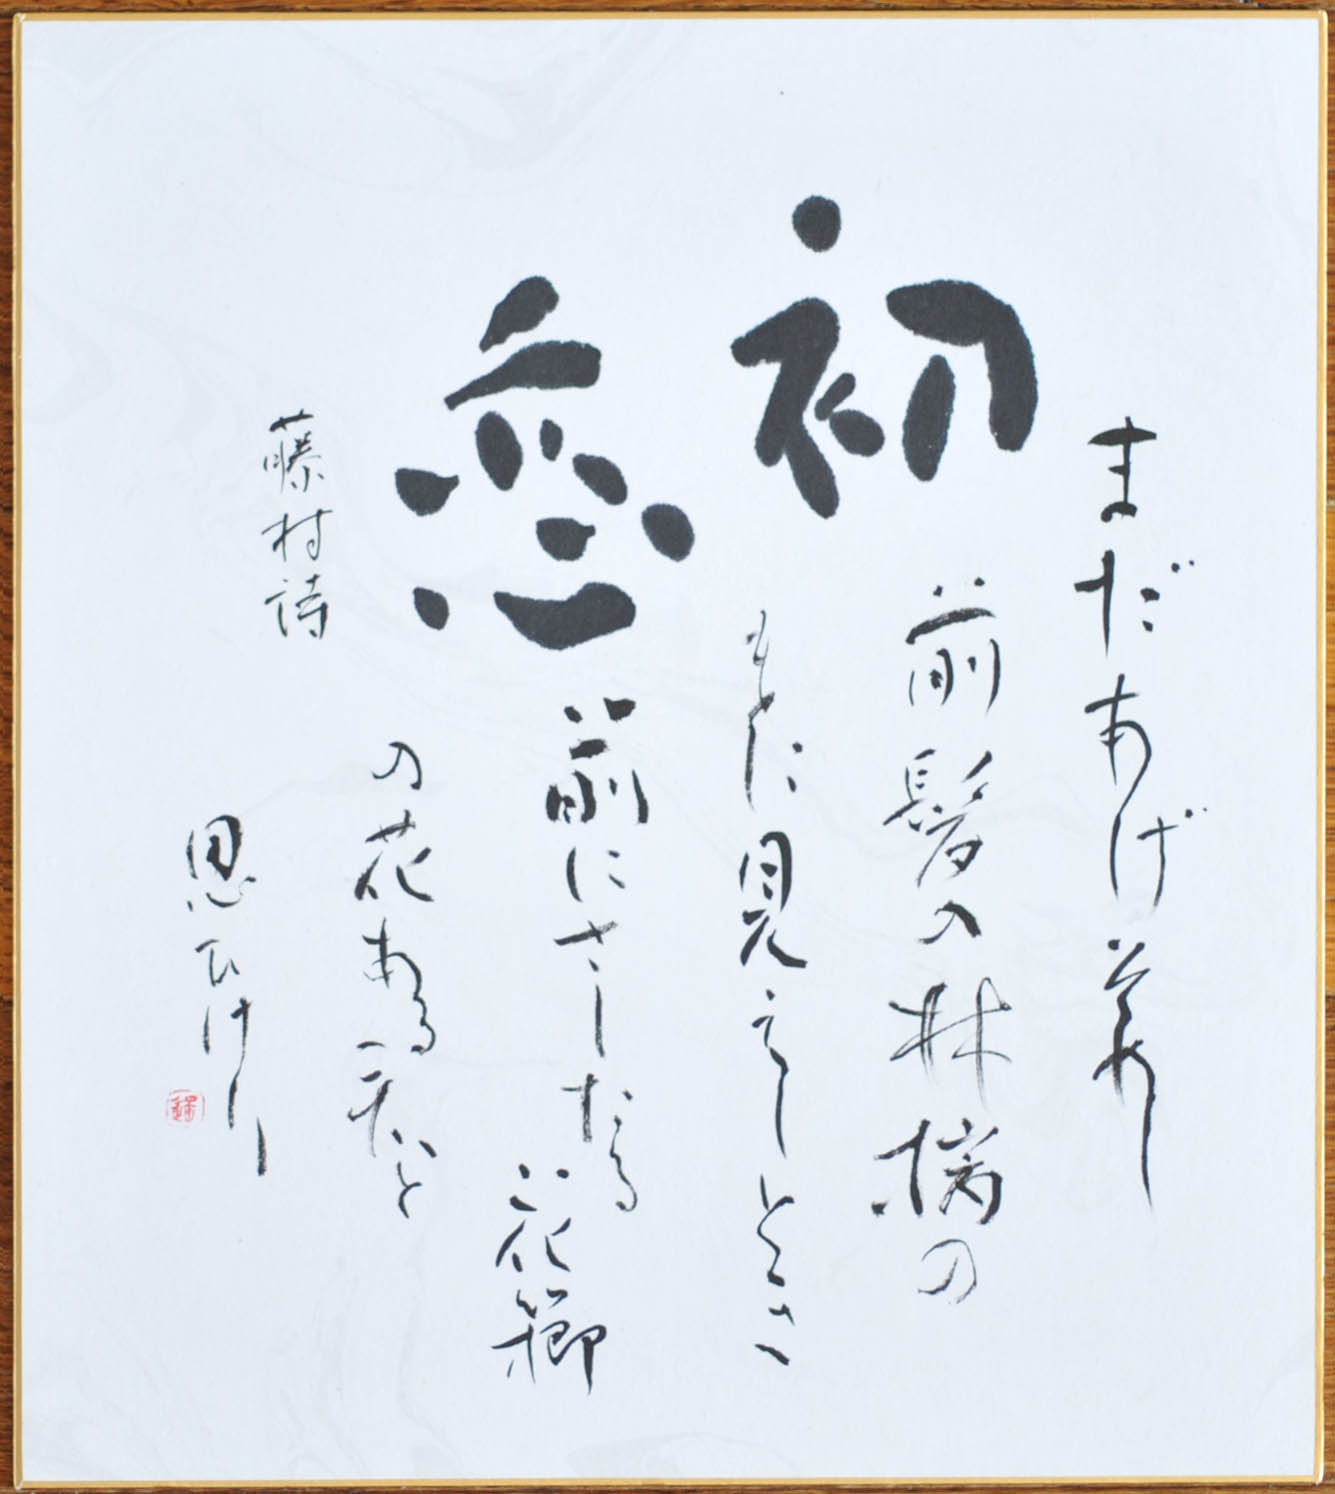 初恋
まだあげ初めし
前髪の林檎の
もとに見えしとき
前にさしたる花櫛
の花ある君と
思ひけり
藤村詩